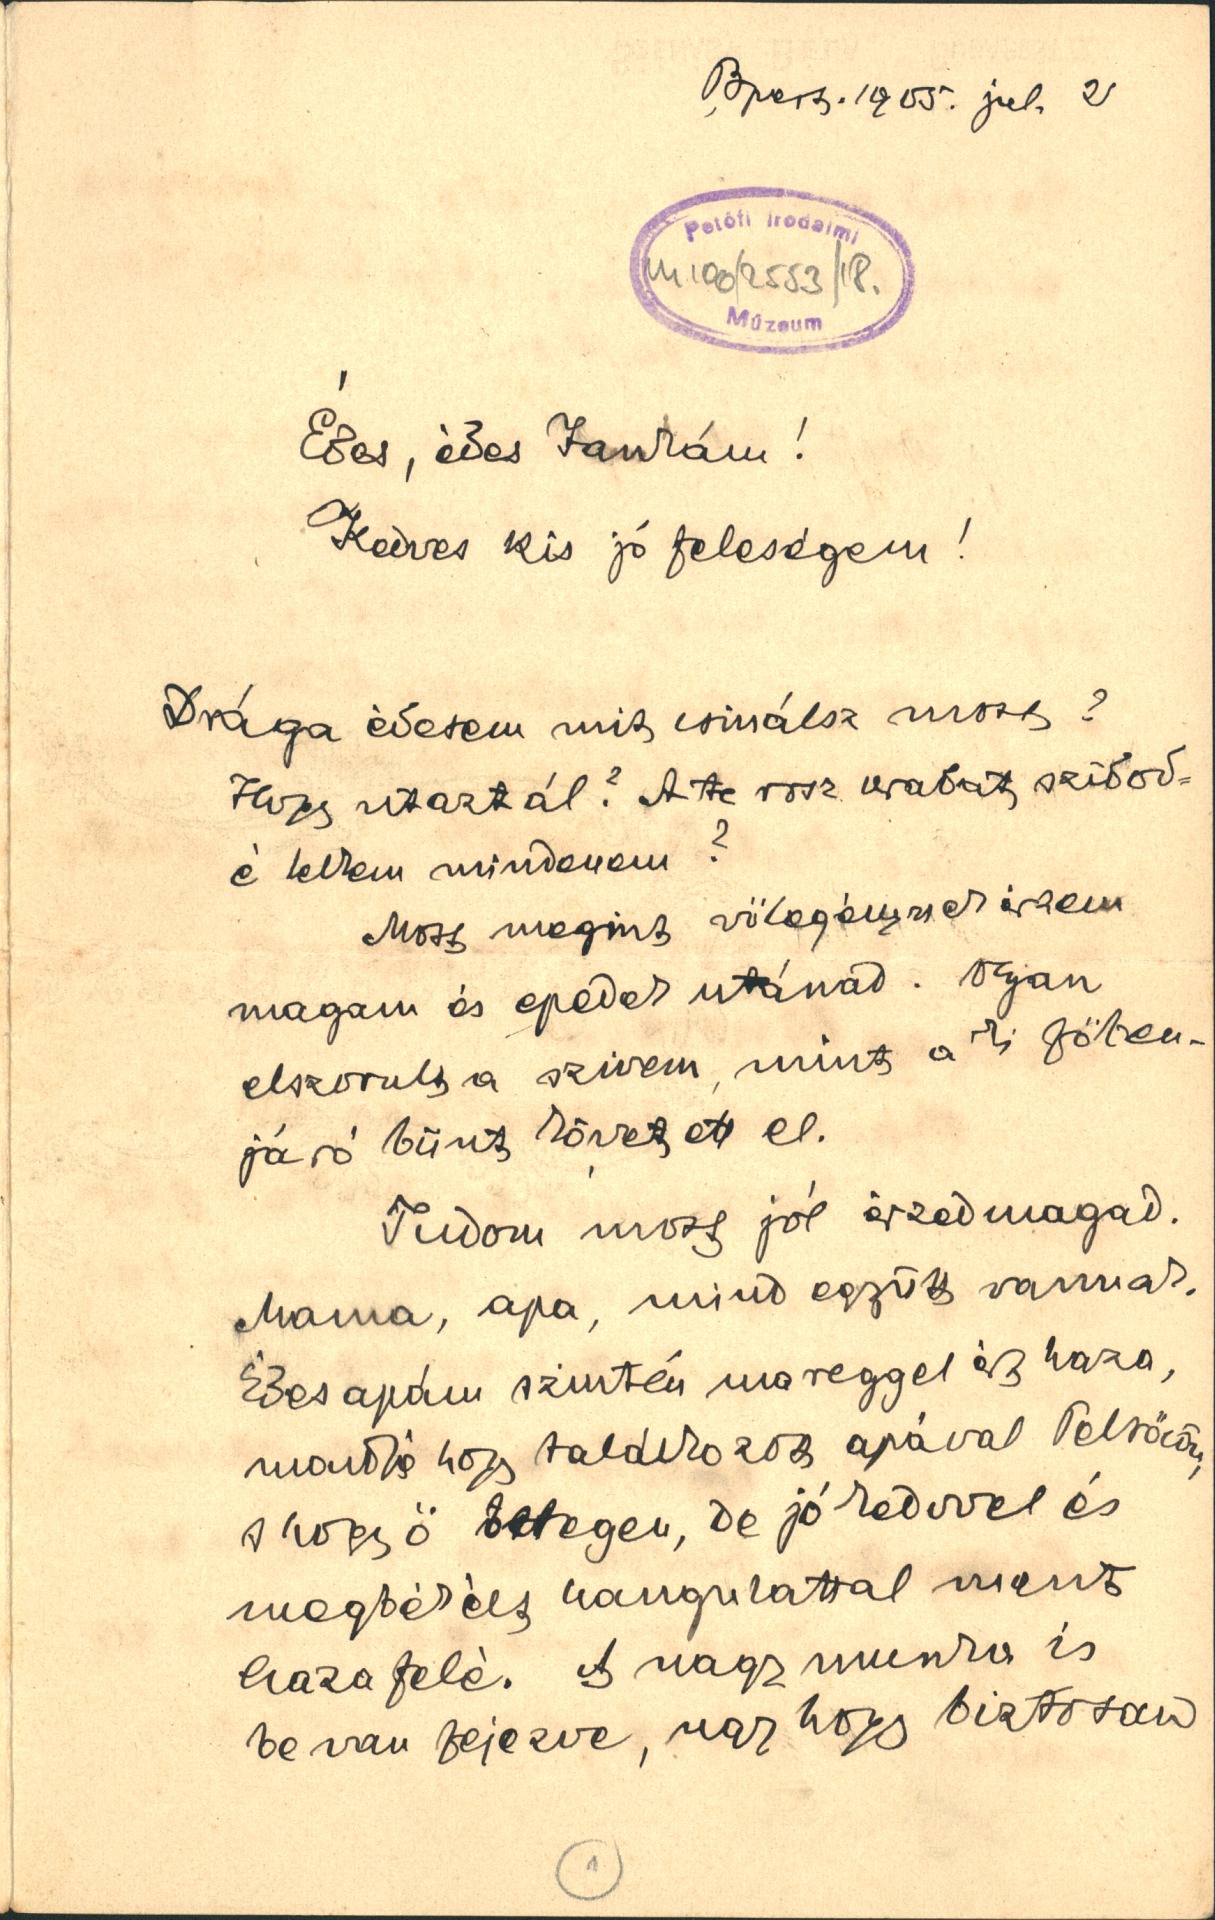 Bpest. 1905. jul. 2
Petőfi Irodalmi
M.100/2553/18.
Múzeum
Édes, édes Jankám!
Kedves kis jó feleségem!
Drága édesem mit csinálsz most?
Hogy utaztál? A te rosz uradat szidod-
é lelkem mindenem?
Most megint vőlegénynek érzem
magam és epedek utánad. Olyan
elszorult a szivem, mint a ki főben-
járó bünt követett el.
Tudom most jól érzed magad.
Mama, apa, mind együtt vannak.
Édes apám szintén ma reggel ért haza,
mondja hogy találkozott apával Felsőőrs,
s hogy ő betegen, de jó kedvvel és
megbékélt hangulattal ment
hazafelé. A nagy munka is
be van fejezve, ugy hogy biztosan
1